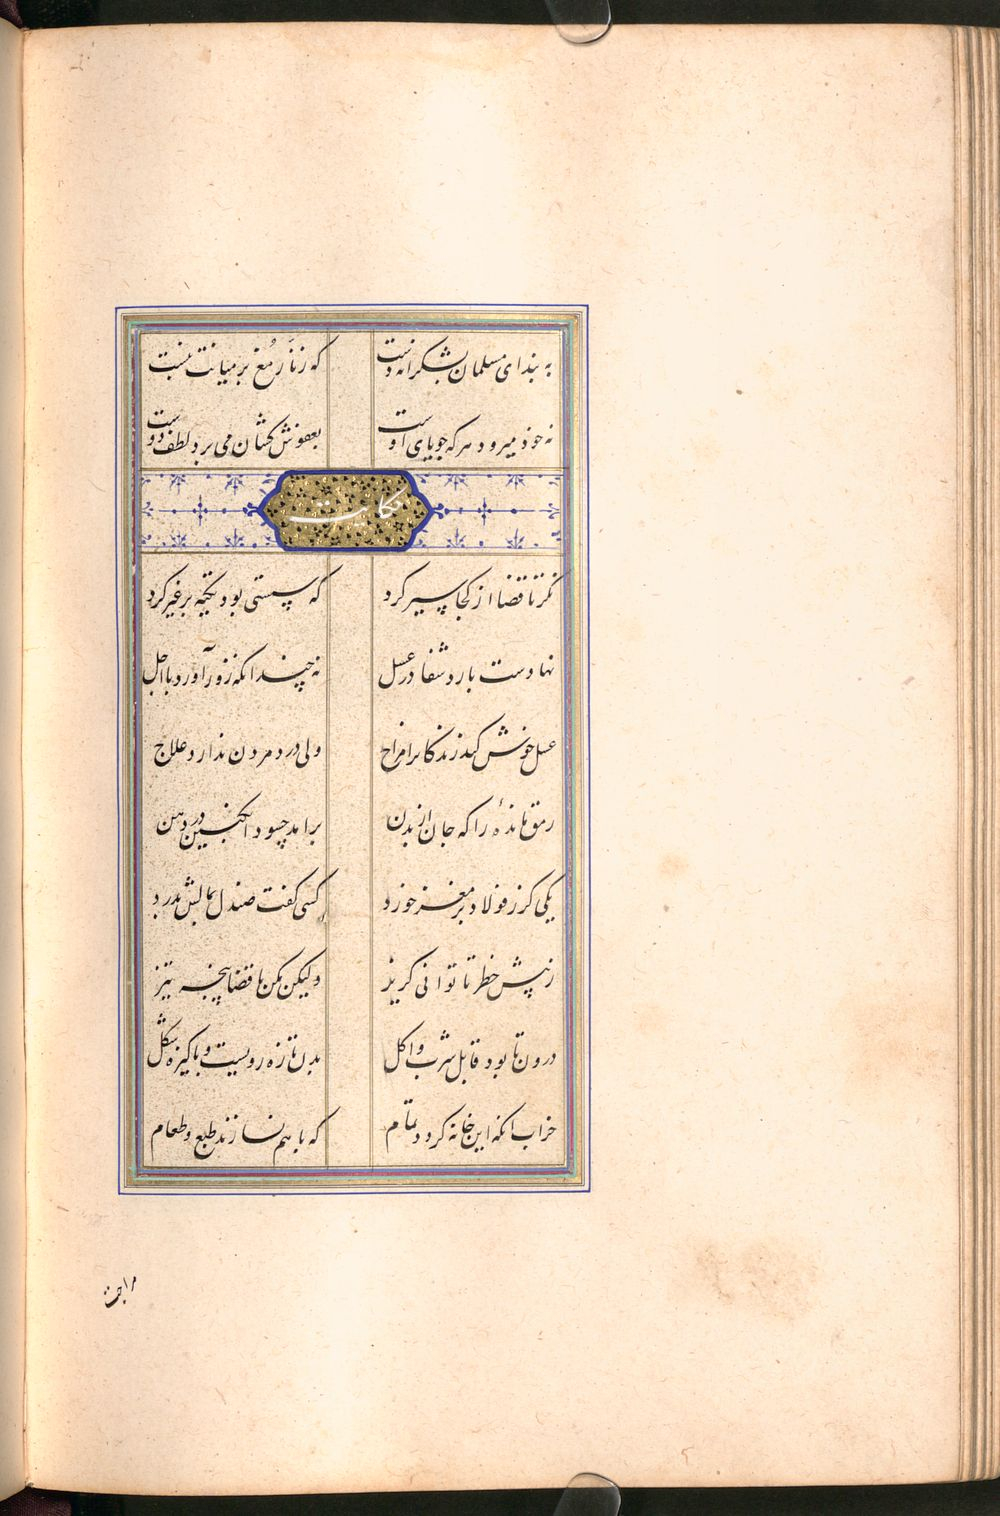 به بند ای مسلمان بشکرانه دست که زنار مغ بر میانت نبست
نه خود میرود هر که جویای اوست بعفوش کشان می برد لطف دوست
حکایت
نگر تا قضا از کجا سیر کرد که سستی بود تکیه بر غیر کرد
نهادست باری شفا در عسل نه چندانکه زور آورد با اجل
عسل خوش کند زندگانرا مزاج ولی درد مردن ندارد علاج
رمق مانده را که جان از بدن برامد چسود انکبین در دهن
یکی کرز فولاد بر مغز خورد کسی کفت صندل بمالش بدرد
ز پیش خطر تا توانی کریز ولیکن مکن با قضا پنجه تیز
درون تا بود قابل شرب و اکل بدن تازه رویست و پاکیزه شکل
خراب انکه این خانه کردد تمام که با هم نسازند طبع و طعام
مزاجت